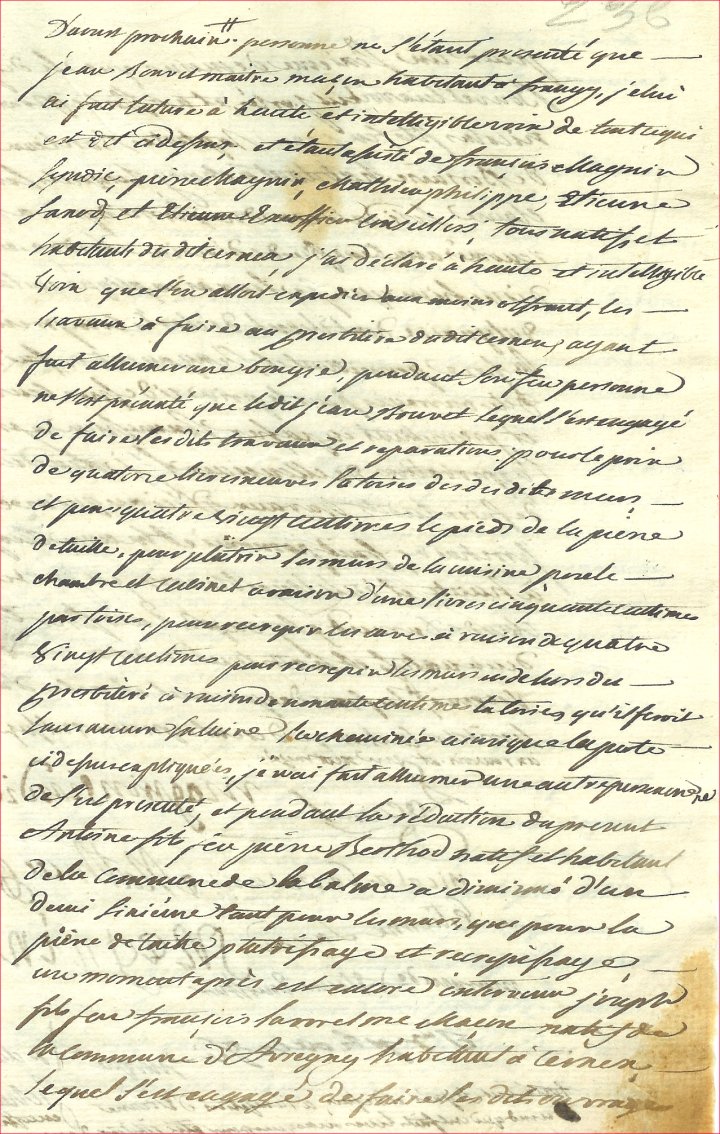 D'aoust prochain #. personne ne s'étant presenté que —
jean Bouvet maitre maçon habitant à frangy, je lui
ai fait lecture à haute et intelligible voix de tout ce qui
est dit cidessus, et étant assisté de françois Magnin
syndic, pierre Magnin, Mathieu philippe, Etienne
et Etienne conseillers, tous natifs et
habitants du dit cernex, j'ai déclaré à haute et intelligible
voix que l'on alloit expedier aux moins offrant, les —
travaux à faire au presbitère dudit cernex, ayant
fait allumer une bougie, pendant son feu personne
ne s'est présenté que ledit jean Bouvet lequel s'est engagé
de faire les dits travaux et reparations pour le prix
de quatorze livres neuves la toise des dits murs, —
et pour quatre vingt centimes le pieds de la pierre
de taille, pour platrir les murs de la cuisine poele —
chambre et cabinet à raison d'une livre cinquante centimes
par toises, pour recrepir les caves à raison de quatre
vingt centimes pour recrepir les murs en dehors du —
presbitère à raison de nonante centime la toises qu'il feroit
sans aucun salaire la cheminée ainsi que la porte
cidessus expliquées, j'en ai fait allumer une autre personne ne
s'est presenté, et pendant la rédaction du present
Antoine fils feu pierre Berthod natif et habitant
de la Commune de la balme a diminué d'un
demi sixième tant pour les murs, que pour la
pierre de taille platrissage et recrepissage —
un moment après est encore intervenu joseph
fils feu françois Macon natif de
la Commune d'Arcgny habitant à Cernex —
lequel s'est engagé de faire les dits ouvrages